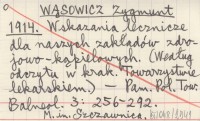 WĄSOWICZ Zygmunt
1914. Wskazania lecznicze
dla naszych zakładów zdro-
jowo-kąpielowych. (Według
odczytu w krak. Towarzystwie
lekarskiem.) — Pam. Pol. Tow.
Balneol. 3: 256-292.
M. in. Szczawnica.